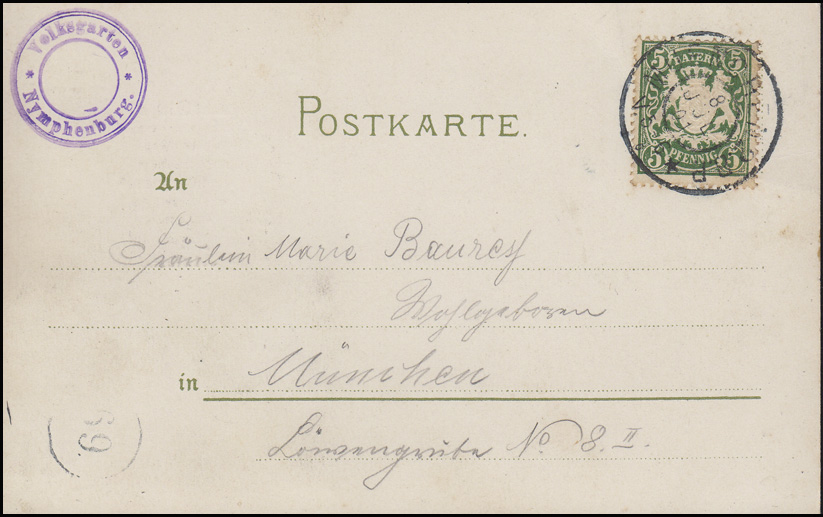 Volksgarten
* Nymphenburg. *
POSTKARTE.
5 BAYERN 5
5 PFENNIG 5
An
Fräulein Marie
Wohlgeboren
in München
Löwengrube No. 8. II.
69